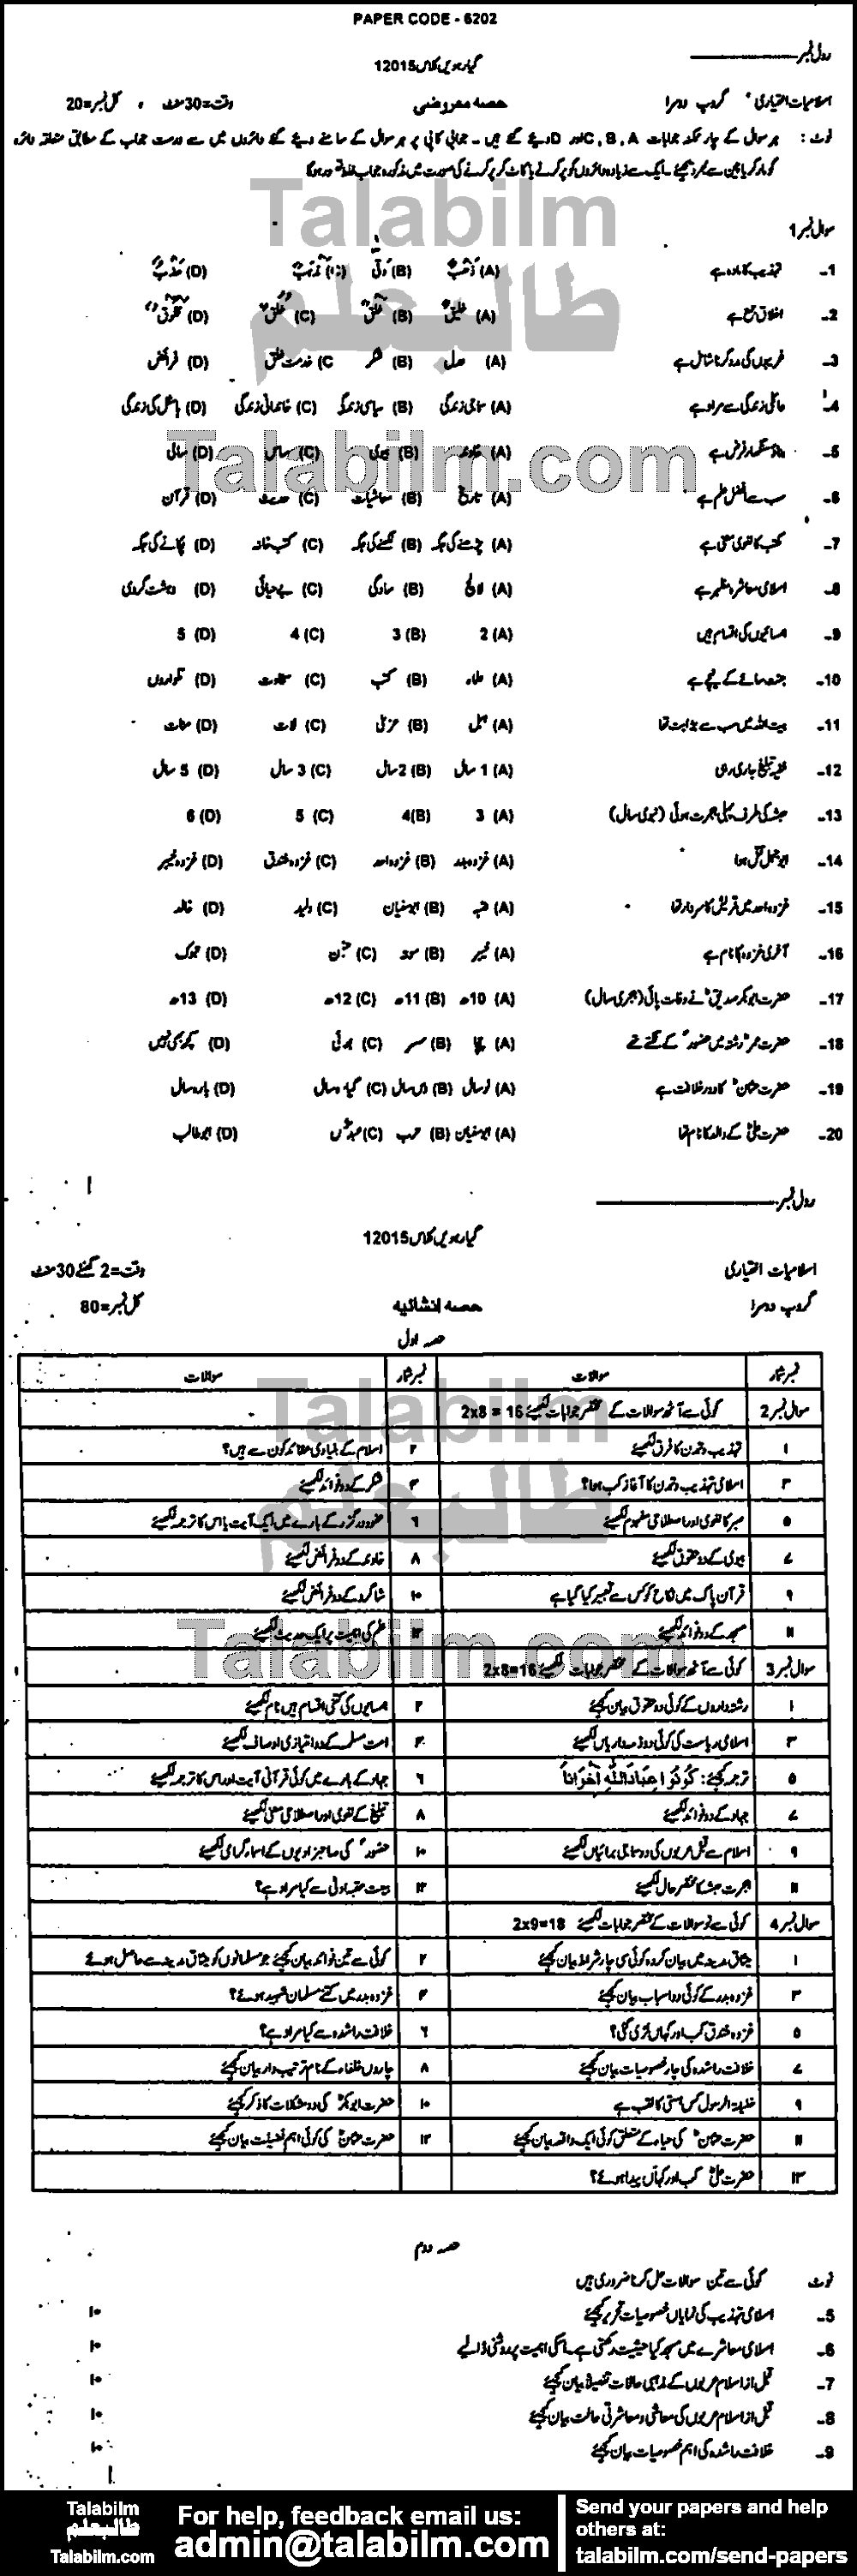 PAPER CODE - 6202
رول نمبر
گیارہویں کلاس 12015
اسلامیات اختیاری گروپ دوسرا حصہ معروضی وقت=30منٹ ، کل نمبر=20
نوٹ: ہر سوال کے چار ممکنہ جوابات C, B, A اور D دیئے گئے ہیں - جوابی کاپی پر ہر سوال کے سامنے دیئے گئے دائروں میں سے درست جواب کے مطابق متعلقہ دائرہ
کو مارکر یا پین سے بھر دیجئے ایک سے زیادہ دائروں کو پُر کرنے یا کاٹ کر پُر کرنے کی صورت میں مذکورہ جواب غلط تصور ہوگا
Talabilm
طالبعلم
سوال نمبر 1
1- تہذیب کا مادہ ہے (A) (B) (D)
2- اخلاق جمع ہے (A) خلیق (B) خلق (C) خُلق (D) مخلوق
3- غریبوں کی مدد کرنا شامل ہے (A) عدل (B) شکر (C خدمت خلق (D) فرائض
4- عائلی زندگی سے مراد ہے (A) سماجی زندگی (B) سیاسی زندگی (C) خاندانی زندگی (D) ہاسٹل کی زندگی
Talabilm.com
5- بناؤ سنگھار فرض ہے (A) خاوند (B) بیوی (C) ساس (D) سالی
6- سب سے افضل علم ہے (A) تاریخ (B) معاشیات (C) حدیث (D) قرآن
7- مکتب کا لغوی معنی ہے (A) پڑھنے کی جگہ (B) لکھنے کی جگہ (C) کتب خانہ (D) پکانے کی جگہ
8- اسلامی معاشرہ مظہر ہے (A) لالچ (B) سادگی (C) بے حیائی (D) دہشت گردی
9- ہمسائیوں کی اقسام ہیں (A) 2 (B) 3 (C) 4 (D) 5
10- جنت سائے کے نیچے ہے (A) علماء (B) کتب (C) سخاوت (D) تلواروں
11- بیت اللہ میں سب سے بڑا بت تھا (A) ہبل (B) عزیٰ (C) لات (D) منات
12- خفیہ تبلیغ جاری رہی (A) 1 سال (B) 2سال (C) 3 سال (D) 5 سال
13- حبشہ کی طرف پہلی ہجرت ہوئی (نبوی سال) (A) 3 (B)4 (C) 5 (D) 6
14- ابو جہل قتل ہوا (A) غزوہ بدر (B) غزوہ احد (C) غزوہ خندق (D) غزوہ خیبر
15- غزوہ احد میں قریش کا سردار تھا (A) عتبہ (B) ابوسفیان (C) ولید (D) خالد
16- آخری غزوہ کا نام ہے (A) خیبر (B) موتہ (C) حنین (D) تبوک
17- حضرت ابوبکر صدیقؓ نے وفات پائی (ہجری سال) (A) 10ھ (B) 11ھ (C) 12ھ (D) 13ھ
18- حضرت عمرؓ رشتہ میں حضورؐ کے لگتے تھے (A) چچا (B) سسر (C) بھائی (D) کچھ بھی نہیں
19- حضرت عثمانؓ کا دور خلافت ہے (A) نو سال (B) دس سال (C) گیارہ سال (D) بارہ سال
20- حضرت علیؓ کے والد کا نام تھا (A) ابوسفیان (B) حرب (C) عبداللہ (D) ابوطالب
رول نمبر
گیارہویں کلاس 12015
اسلامیات اختیاری وقت=2 گھنٹے 30 منٹ
گروپ دوسرا حصہ انشائیہ کل نمبر=80
حصہ اول
نمبر شمار سوالات نمبر شمار سوالات
Talabilm
طالبعلم
سوال نمبر 2 کوئی سے آٹھ سوالات کے مختصر جوابات لکھیئے 2x8 = 16
۱ تہذیب و تمدن کا فرق لکھیئے ۲ اسلام کے بنیادی عقائد کون سے ہیں؟
۳ اسلامی تہذیب و تمدن کا آغاز کب ہوا؟ ۴ شکر کے دو فوائد لکھیئے
۵ صبر کا لغوی اور اصطلاحی مفہوم لکھیئے ۶ عفو و درگزر کے بارے میں ایک آیت یا اس کا ترجمہ لکھیئے
۷ بیوی کے دو حقوق لکھیئے ۸ خاوند کے دو فرائض لکھیئے
۹ قرآن پاک میں نکاح کو کس سے تعبیر کیا گیا ہے ۱۰ شاگرد کے دو فرائض لکھیئے
Talabilm.com
۱۱ مسجد کے دو فوائد لکھیئے ۱۲ علم کی اہمیت پر ایک حدیث لکھیئے
سوال نمبر 3 کوئی سے آٹھ سوالات کے مختصر جوابات لکھیئے 2x8=16
۱ رشتہ داروں کے کوئی دو حقوق بیان کیجئے ۲ ہمسایوں کی کتنی اقسام ہیں نام لکھیئے
۳ اسلامی ریاست کی کوئی دو ذمہ داریاں لکھیئے ۴ امت مسلمہ کے دو امتیازی اوصاف لکھیئے
۵ ترجمہ کیجئے: كُونُوا عِبَادَاللّٰهِ اِخْوَانًا ۶ جہاد کے بارے میں کوئی قرآنی آیت اور اس کا ترجمہ لکھیئے
۷ جہاد کے دو فوائد لکھیئے ۸ تبلیغ کے لغوی اور اصطلاحی معنی لکھیئے
۹ اسلام سے قبل عربوں کی دو سماجی برائیاں لکھیئے ۱۰ حضورؐ کی صاحبزادیوں کے اسماء گرامی لکھیئے
۱۱ ہجرت حبشہ کا مختصر حال لکھیئے ۱۲ بیعت عقبہ اولیٰ سے کیا مراد ہے؟
سوال نمبر 4 کوئی سے نو سوالات کے مختصر جوابات لکھیئے 2x9=18
۱ میثاق مدینہ میں بیان کردہ کوئی سی چار شرائط بیان کیجئے ۲ کوئی سے تین فوائد بیان کیجئے جو مسلمانوں کو میثاق مدینہ سے حاصل ہوئے
۳ غزوہ بدر کے کوئی دو اسباب بیان کیجئے ۴ غزوہ بدر میں کتنے مسلمان شہید ہوئے؟
۵ غزوہ خندق کب اور کہاں لڑی گئی؟ ۶ خلافت راشدہ سے کیا مراد ہے؟
۷ خلافت راشدہ کی چار خصوصیات بیان کیجئے ۸ چاروں خلفاء کے نام ترتیب وار بیان کیجئے
۹ خلیفۃ الرسول کس ہستی کا لقب ہے ۱۰ حضرت ابوبکرؓ کی دو مشکلات کا ذکر کیجئے
۱۱ حضرت عثمانؓ کی حیاء کے متعلق کوئی ایک واقعہ بیان کیجئے ۱۲ حضرت عثمانؓ کی کوئی اہم فضیلت بیان کیجئے
۱۳ حضرت علیؓ کب اور کہاں پیدا ہوئے؟
حصہ دوم
نوٹ کوئی سے تین سوالات حل کرنا ضروری ہیں
5- اسلامی تہذیب کی نمایاں خصوصیات تحریر کیجئے ۱۰
6- اسلامی معاشرے میں مسجد کیا حیثیت رکھتی ہے۔ اسکی اہمیت پر روشنی ڈالیے ۱۰
7- قبل از اسلام عربوں کے مذہبی حالات تفصیلاً بیان کیجئے ۱۰
8- قبل از اسلام عربوں کی معاشی و معاشرتی حالت بیان کیجئے ۱۰
9- خلافت راشدہ کی اہم خصوصیات بیان کیجئے ۱۰
Talabilm
طالبعلم
Talabilm.com
For help, feedback email us:
admin@talabilm.com
Send your papers and help
others at:
talabilm.com/send-papers